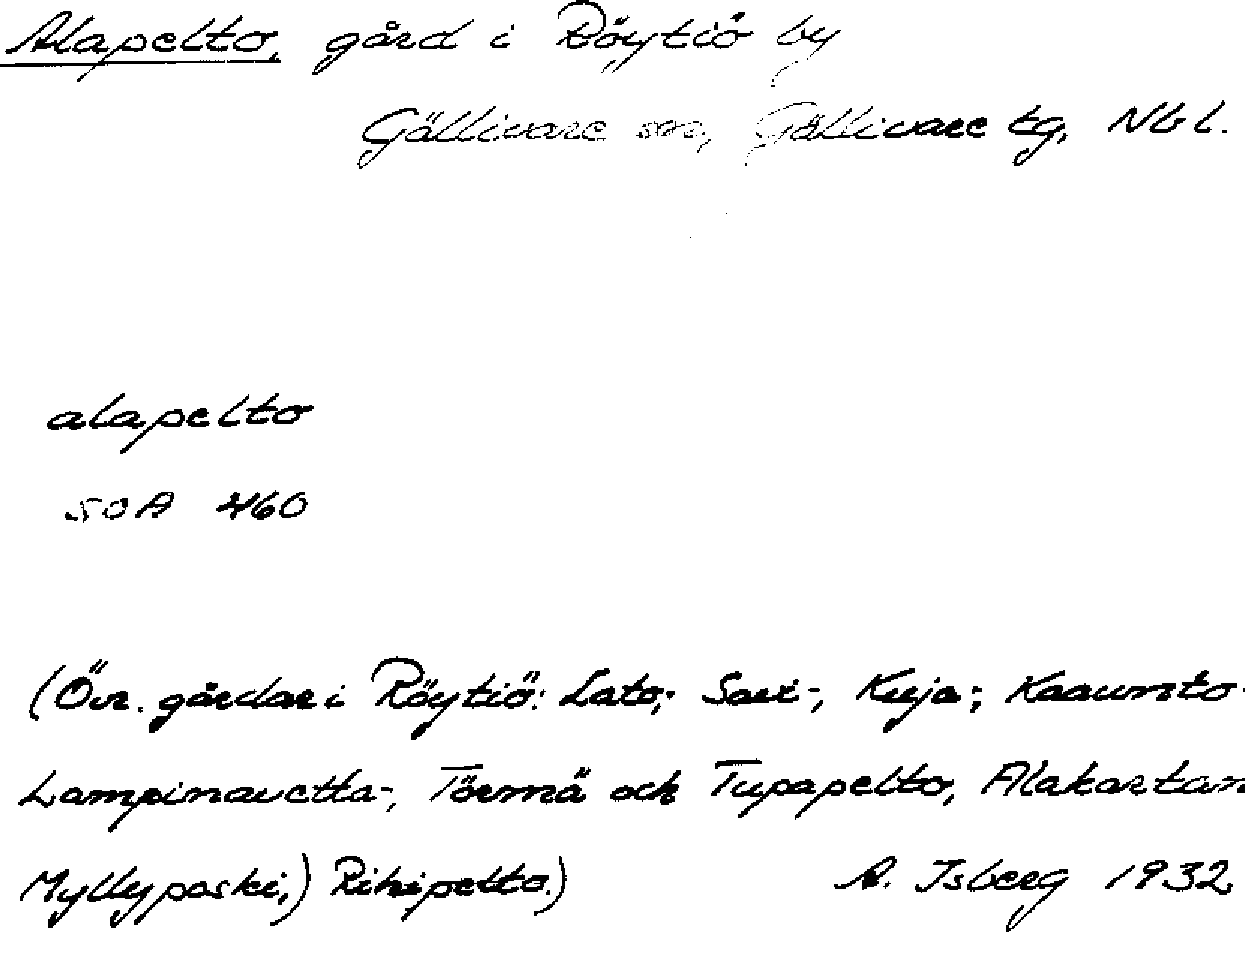 Alapelto, gård i Röytiö by
Gällivare sn, Gällivare tg, Nbl.
alapelto
SOA 460
(Övr. gårdar i Röytiö: Lato-, Savi-, Kuja-,
Lampinavetta-, Törmä och Tupapelto, Alakartan
Myllyposki,) Rihipelto.) A. Isberg 1932